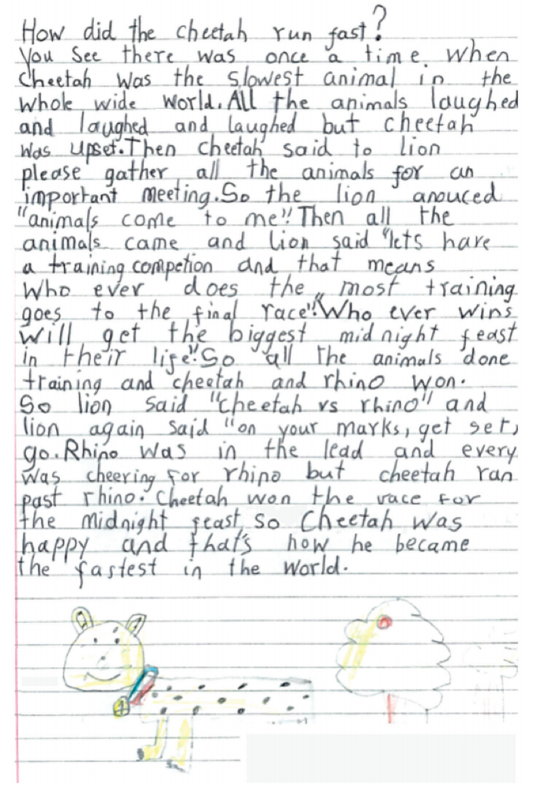 How did the cheetah run fast?
You see there was once a time when
Cheetah was the slowest animal in the
whole wide world. All the animals laughed
and laughed and laughed but cheetah
was upset. Then cheetah said to lion
please gather all the animals for an
important meeting. So the lion anouced
"animals come to me"! Then all the
animals came and lion said "lets have
a training competion and that means
who ever does the most training
goes to the final race"! "Who ever wins
will get the biggest midnight feast
in their life". So all the animals done
training and cheetah and rhino won.
So lion said "cheetah vs rhino" and
lion again said "on your marks, get set,
go. Rhino was in the lead and every
was cheering for rhino but cheetah ran
past rhino. Cheetah won the race for
the midnight feast so Cheetah was
happy and that's how he became
the fastest in the world.